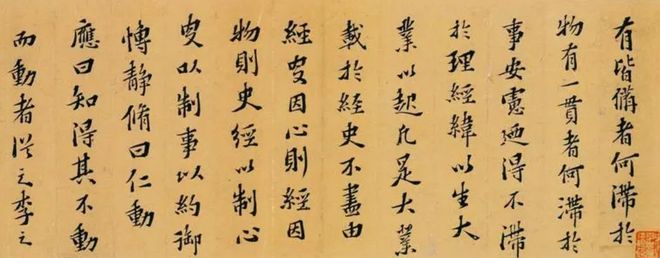 有皆備者何滯於
物有一貫者何滯於
事安慮廼得不滯
於理經緯以生大
業以起凡是大業
載於經史不盡由
經史因心則經因
物則史經以制心
史以制事以約御
博靜脩曰仁動
應曰知得其不動
而動者從之李之